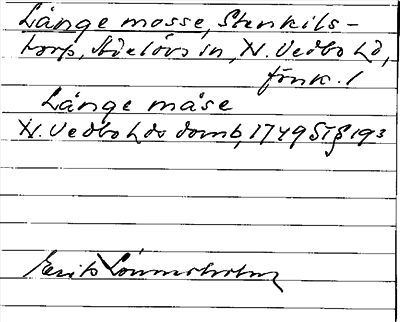 Länge mosse, Stenkils-
torp, Adelövs sn, N. Vedbo hd,
fönk. 1
Länge måse
N. Vedbo hds domb, 1749 ST § 193
Erik Lönnsholm